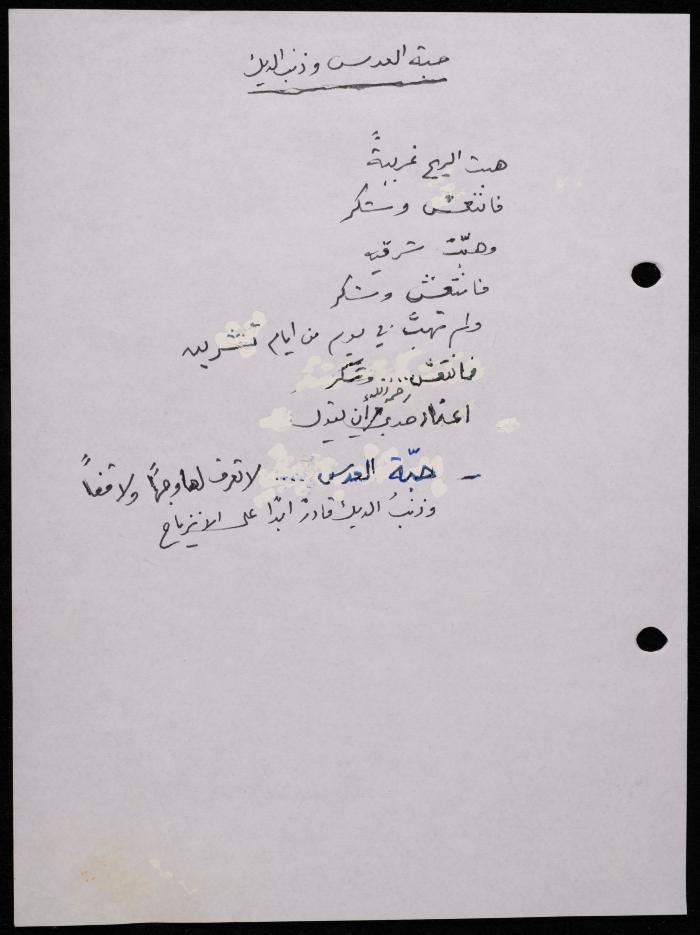 حبة العدس وذنب الديك
هبت الريح غربيةً
فانتعش وسَكر
وهبّت شرقيه
فانتعش وسكر
ولم تهبَّ في يوم من ايام تشرين
فانتعش... وسَكر
اعتاد جدي رحمه الله ان يقول
– حبّة العدس .... لا تعرف لها وجهًا ولا قفاً
وذنبُ الديك قادرٌ ابدًا على الانزياح